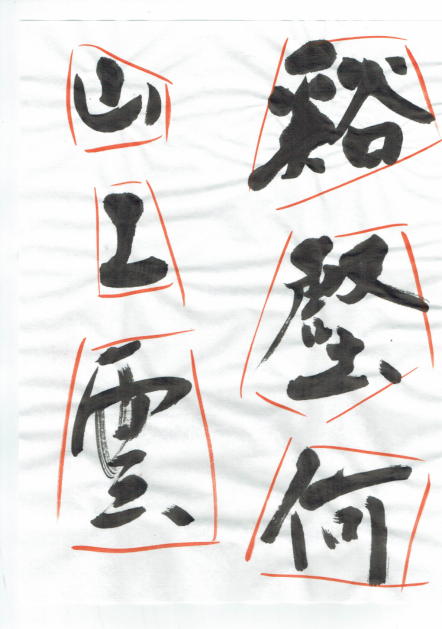 谿壑何
山上雲